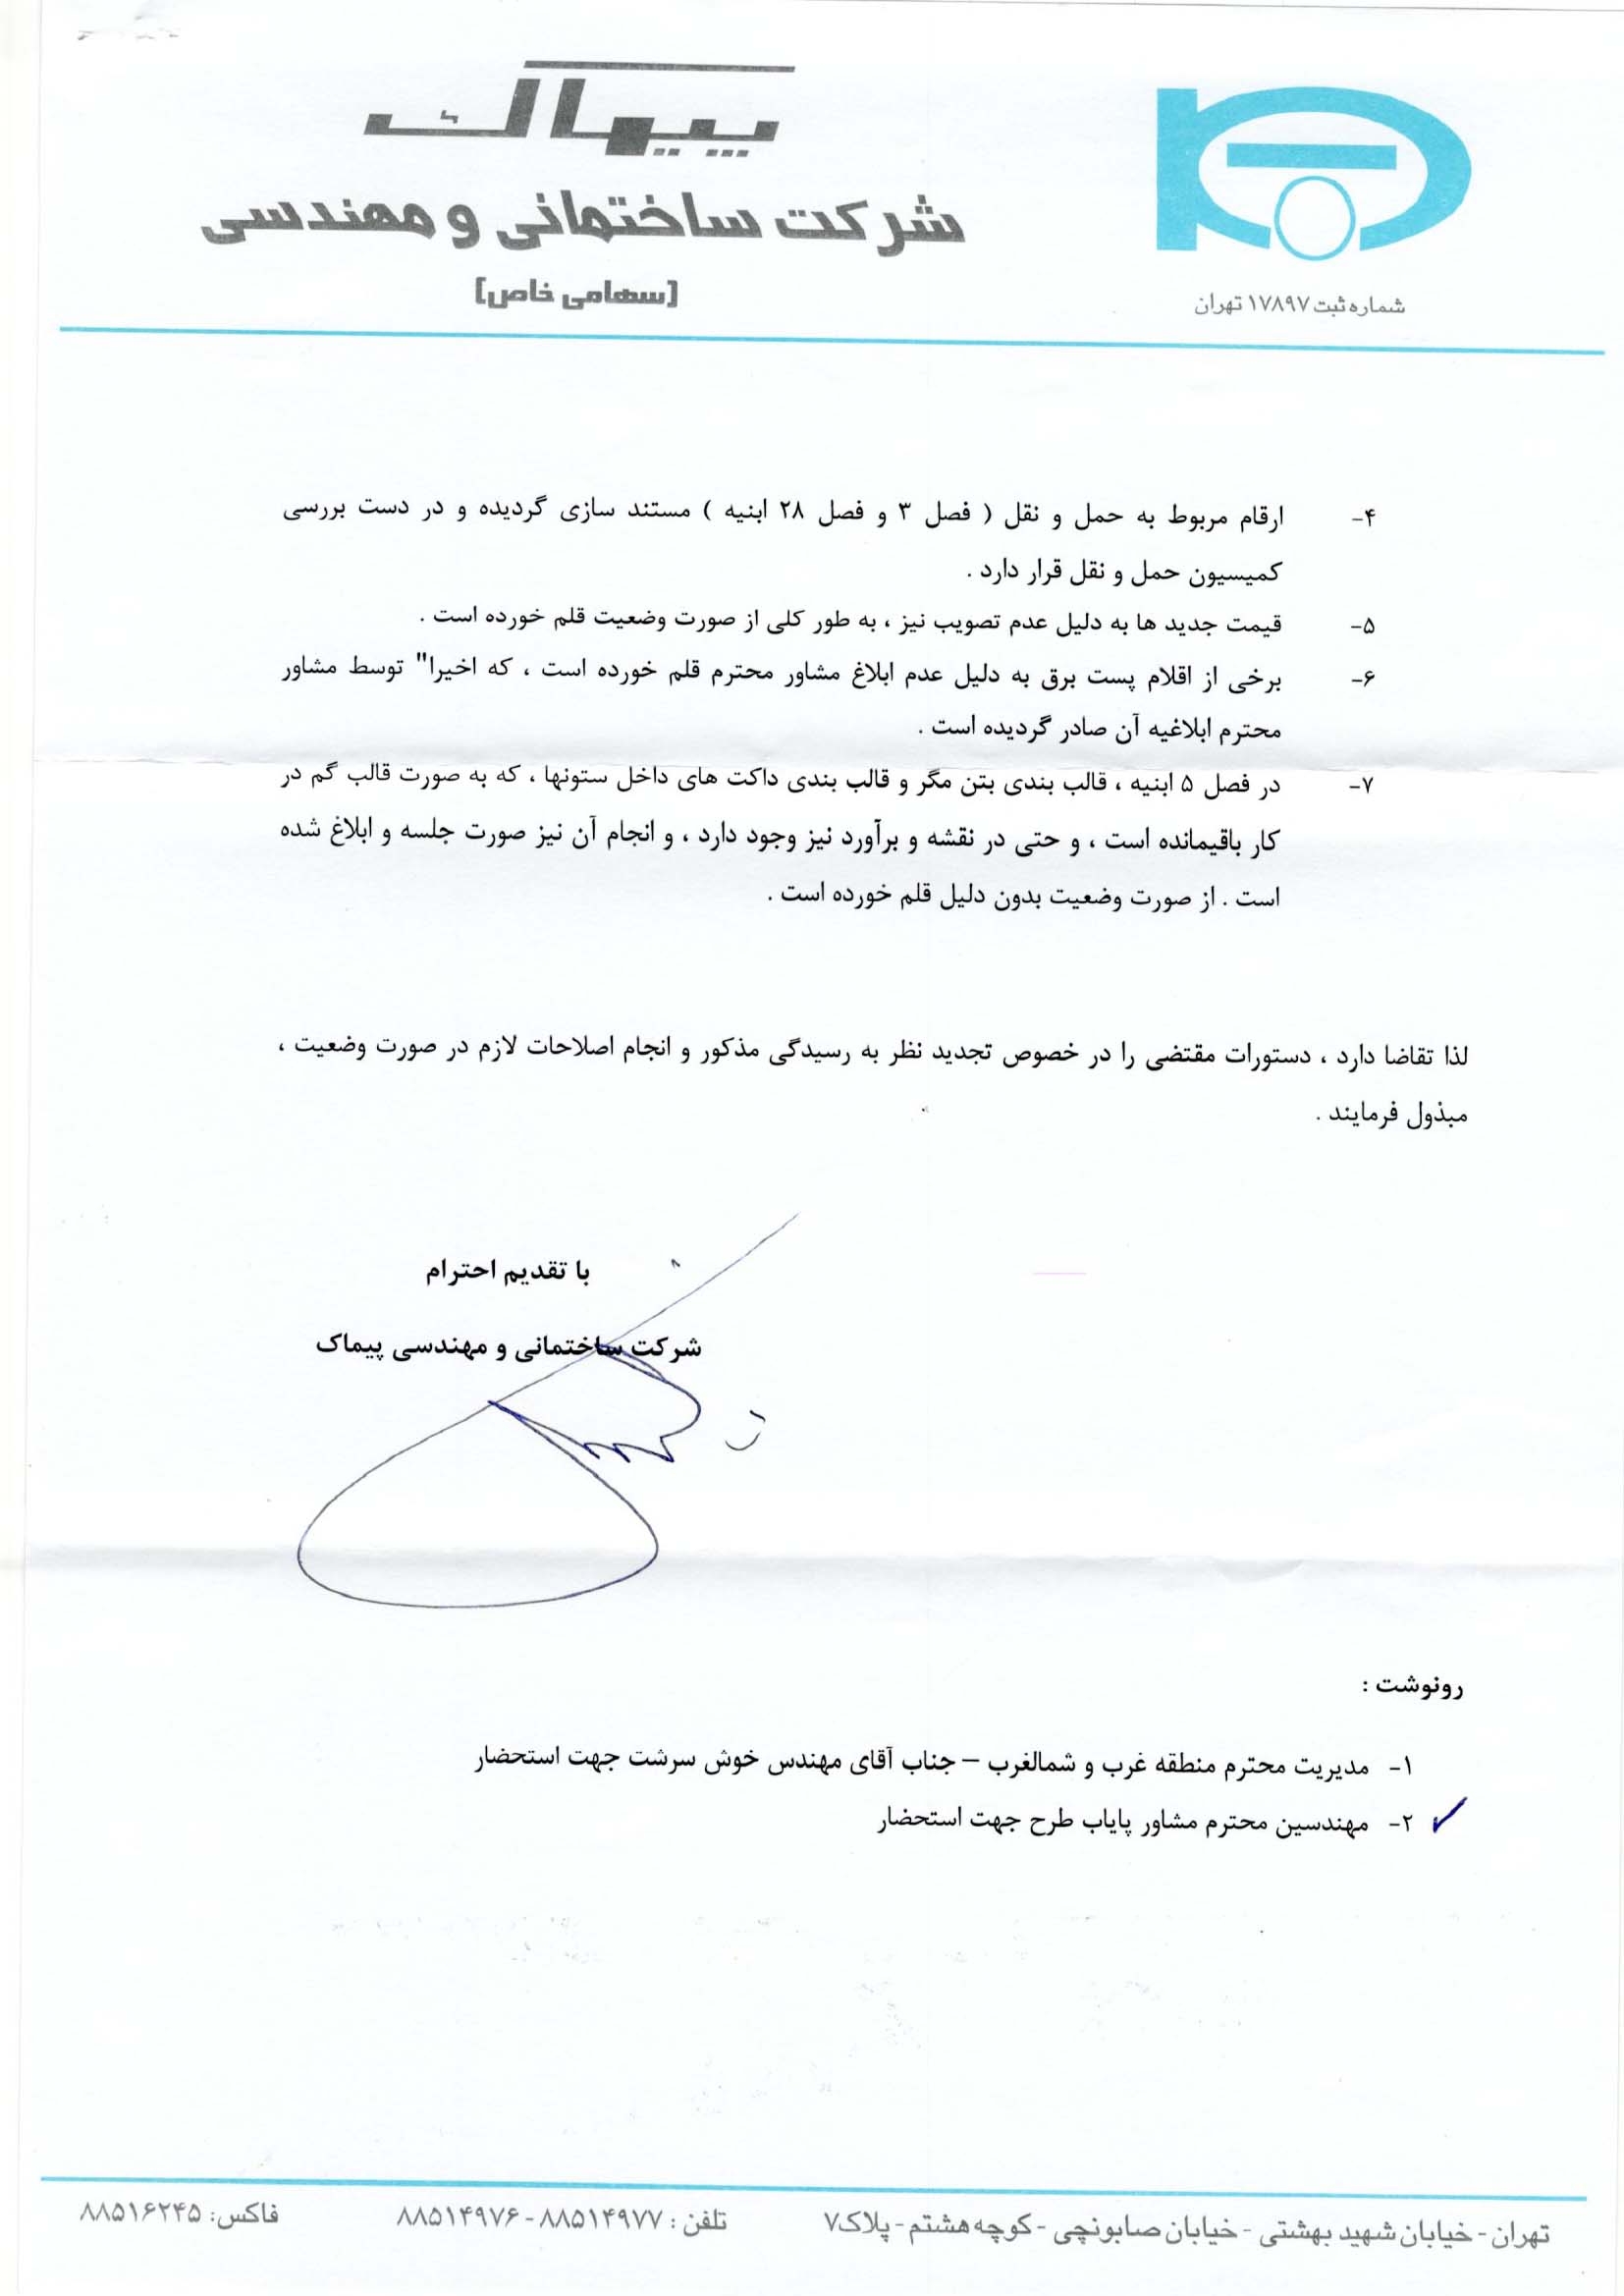 پیماک
شرکت ساختمانی و مهندسی
(سهامی خاص)
شماره ثبت ۱۷۸۹۷ تهران
۴- ارقام مربوط به حمل و نقل ( فصل ۳ و فصل ۲۸ ابنیه ) مستند سازی گردیده و در دست بررسی
کمیسیون حمل و نقل قرار دارد .
۵- قیمت جدید ها به دلیل عدم تصویب نیز ، به طور کلی از صورت وضعیت قلم خورده است .
۶- برخی از اقلام پست برق به دلیل عدم ابلاغ مشاور محترم قلم خورده است ، که اخیرا" توسط مشاور
محترم ابلاغیه آن صادر گردیده است .
۷- در فصل ۵ ابنیه ، قالب بندی بتن مگر و قالب بندی داکت های داخل ستونها ، که به صورت قالب گم در
کار باقیمانده است ، و حتی در نقشه و برآورد نیز وجود دارد ، و انجام آن نیز صورت جلسه و ابلاغ شده
است . از صورت وضعیت بدون دلیل قلم خورده است .
لذا تقاضا دارد ، دستورات مقتضی را در خصوص تجدید نظر به رسیدگی مذکور و انجام اصلاحات لازم در صورت وضعیت ،
مبذول فرمایند .
با تقدیم احترام
شرکت ساختمانی و مهندسی پیماک
رونوشت :
۱- مدیریت محترم منطقه غرب و شمالغرب – جناب آقای مهندس خوش سرشت جهت استحضار
۲- مهندسین محترم مشاور پایاب طرح جهت استحضار
تهران - خیابان شهید بهشتی - خیابان صابونچی - کوچه هشتم - پلاک۷ تلفن : ۸۸۵۱۴۹۷۷ - ۸۸۵۱۴۹۷۶ فاکس: ۸۸۵۱۶۲۴۵